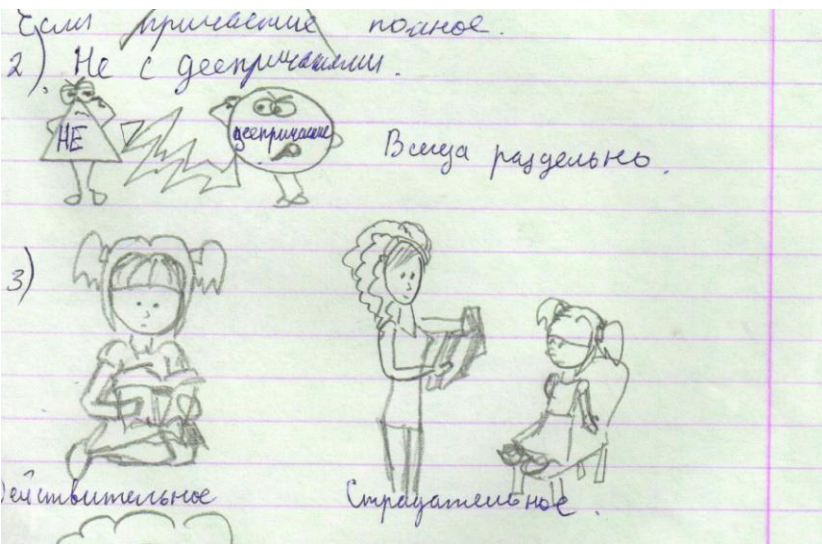 Если причастие полное.
2). Не с деепричастиями.
НЕ
деепричастие
Всегда раздельно.
3)
Действительное
Страдательное.